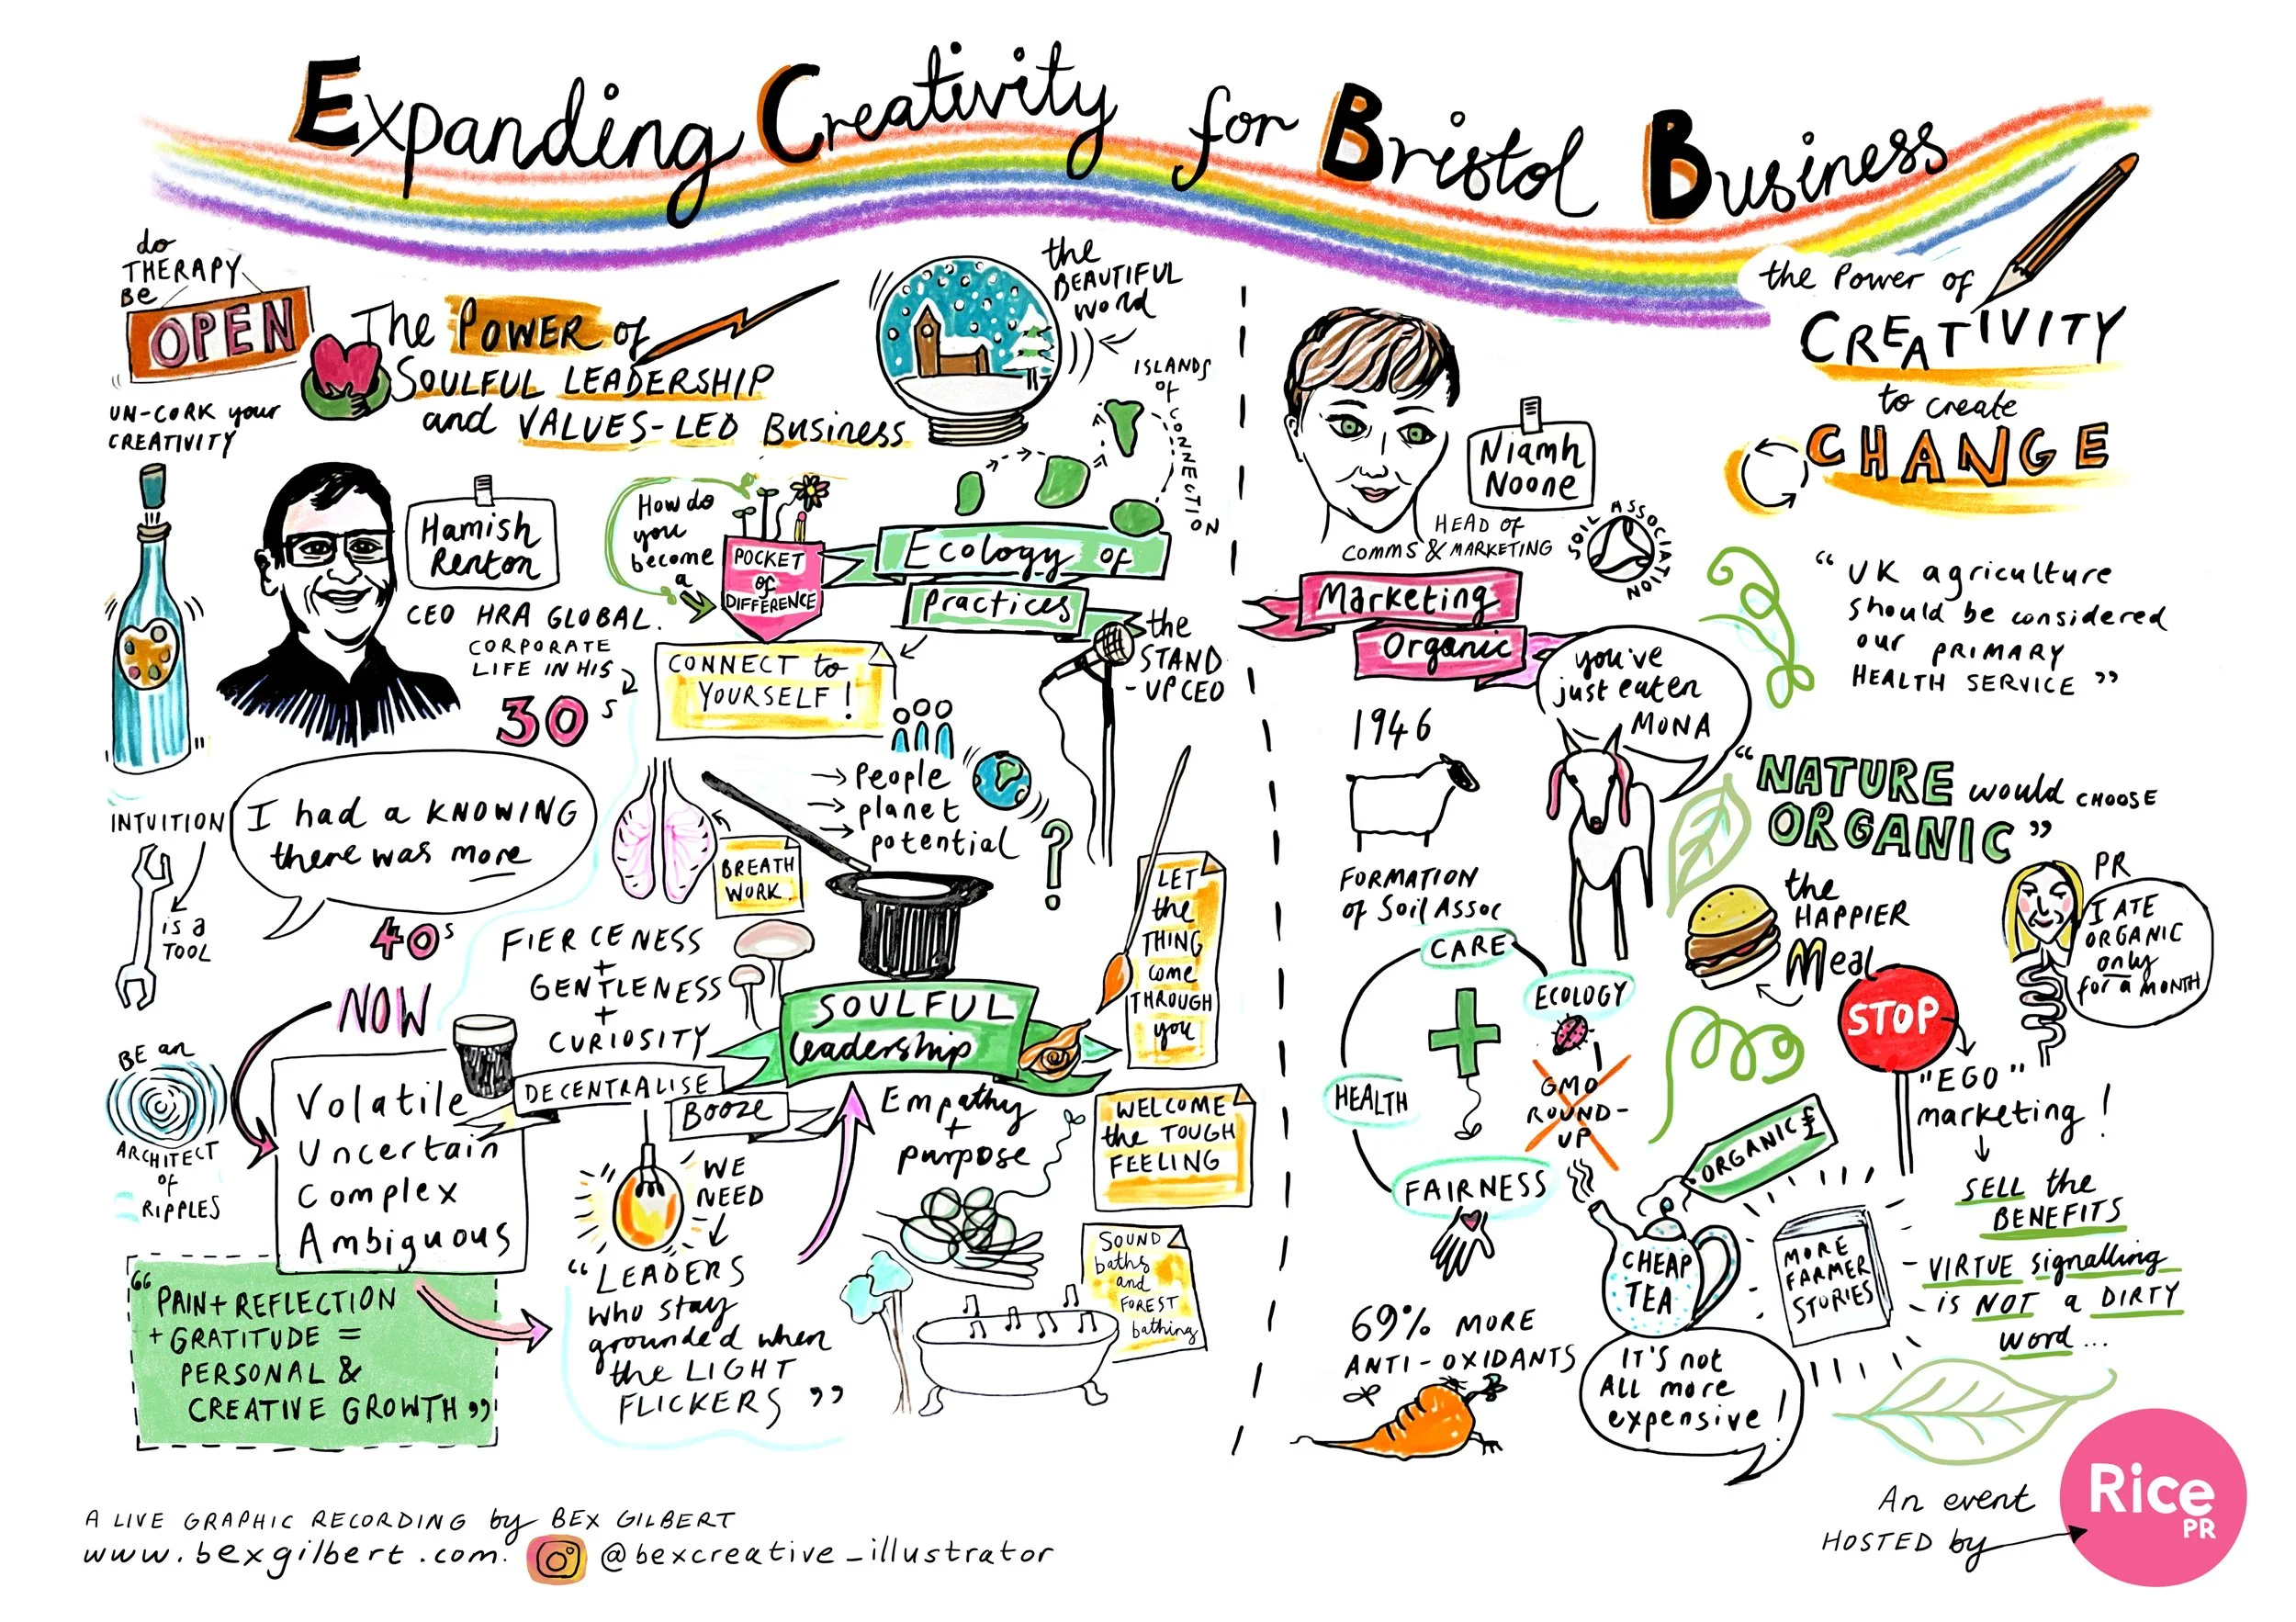 Expanding Creativity for Bristol Business
do
THERAPY
Be
OPEN
UN-CORK your
CREATIVITY
The POWER of
SOULFUL LEADERSHIP
and VALUES-LED Business
the
BEAUTIFUL
word
ISLANDS
of
CONNECTION
Hamish
Renton
CEO HRA GLOBAL.
CORPORATE
LIFE IN HIS
30s
How do
you
become
a
POCKET
of
DIFFERENCE
Ecology of
Practices
CONNECT to
YOURSELF!
the
STAND
-UP CEO
People
planet
potential
?
INTUITION
is a
TOOL
I had a KNOWING
there was more
40s
NOW
BREATH
WORK
FIERCENESS
+
GENTLENESS
+
CURIOSITY
LET
the
THING
come
THROUGH
you
SOULFUL
leadership
BE an
ARCHITECT
of
RIPPLES
Volatile
Uncertain
Complex
Ambiguous
DECENTRALISE
BOOZE
Empathy
+
purpose
WELCOME
the TOUGH
FEELING
WE
NEED
"LEADERS
who stay
grounded when
the LIGHT
FLICKERS"
SOUND
baths
and
FOREST
bathing
"PAIN + REFLECTION
+ GRATITUDE =
PERSONAL &
CREATIVE GROWTH"
the Power of
CREATIVITY
to create
CHANGE
Niamh
Noone
HEAD of
COMMS & MARKETING
SOIL ASSOCIATION
Marketing
Organic
"UK agriculture
should be considered
our PRIMARY
HEALTH SERVICE"
you've
just eaten
MONA
1946
FORMATION
of Soil Assoc
"NATURE would CHOOSE
ORGANIC"
the
HAPPIER
Meal
PR
I ATE
ORGANIC
only
for a MONTH
CARE
ECOLOGY
HEALTH
FAIRNESS
GMO
ROUND-
UP
STOP
"EGO"
marketing!
SELL the
BENEFITS
- VIRTUE signalling
is NOT a DIRTY
word...
ORGANIC £
CHEAP
TEA
MORE
FARMER
STORIES
69% MORE
ANTI-OXIDANTS
IT'S not
ALL more
expensive!
A LIVE GRAPHIC RECORDING by BEX GILBERT
www.bexgilbert.com.
@bexcreative_illustrator
An event
HOSTED by
Rice
PR